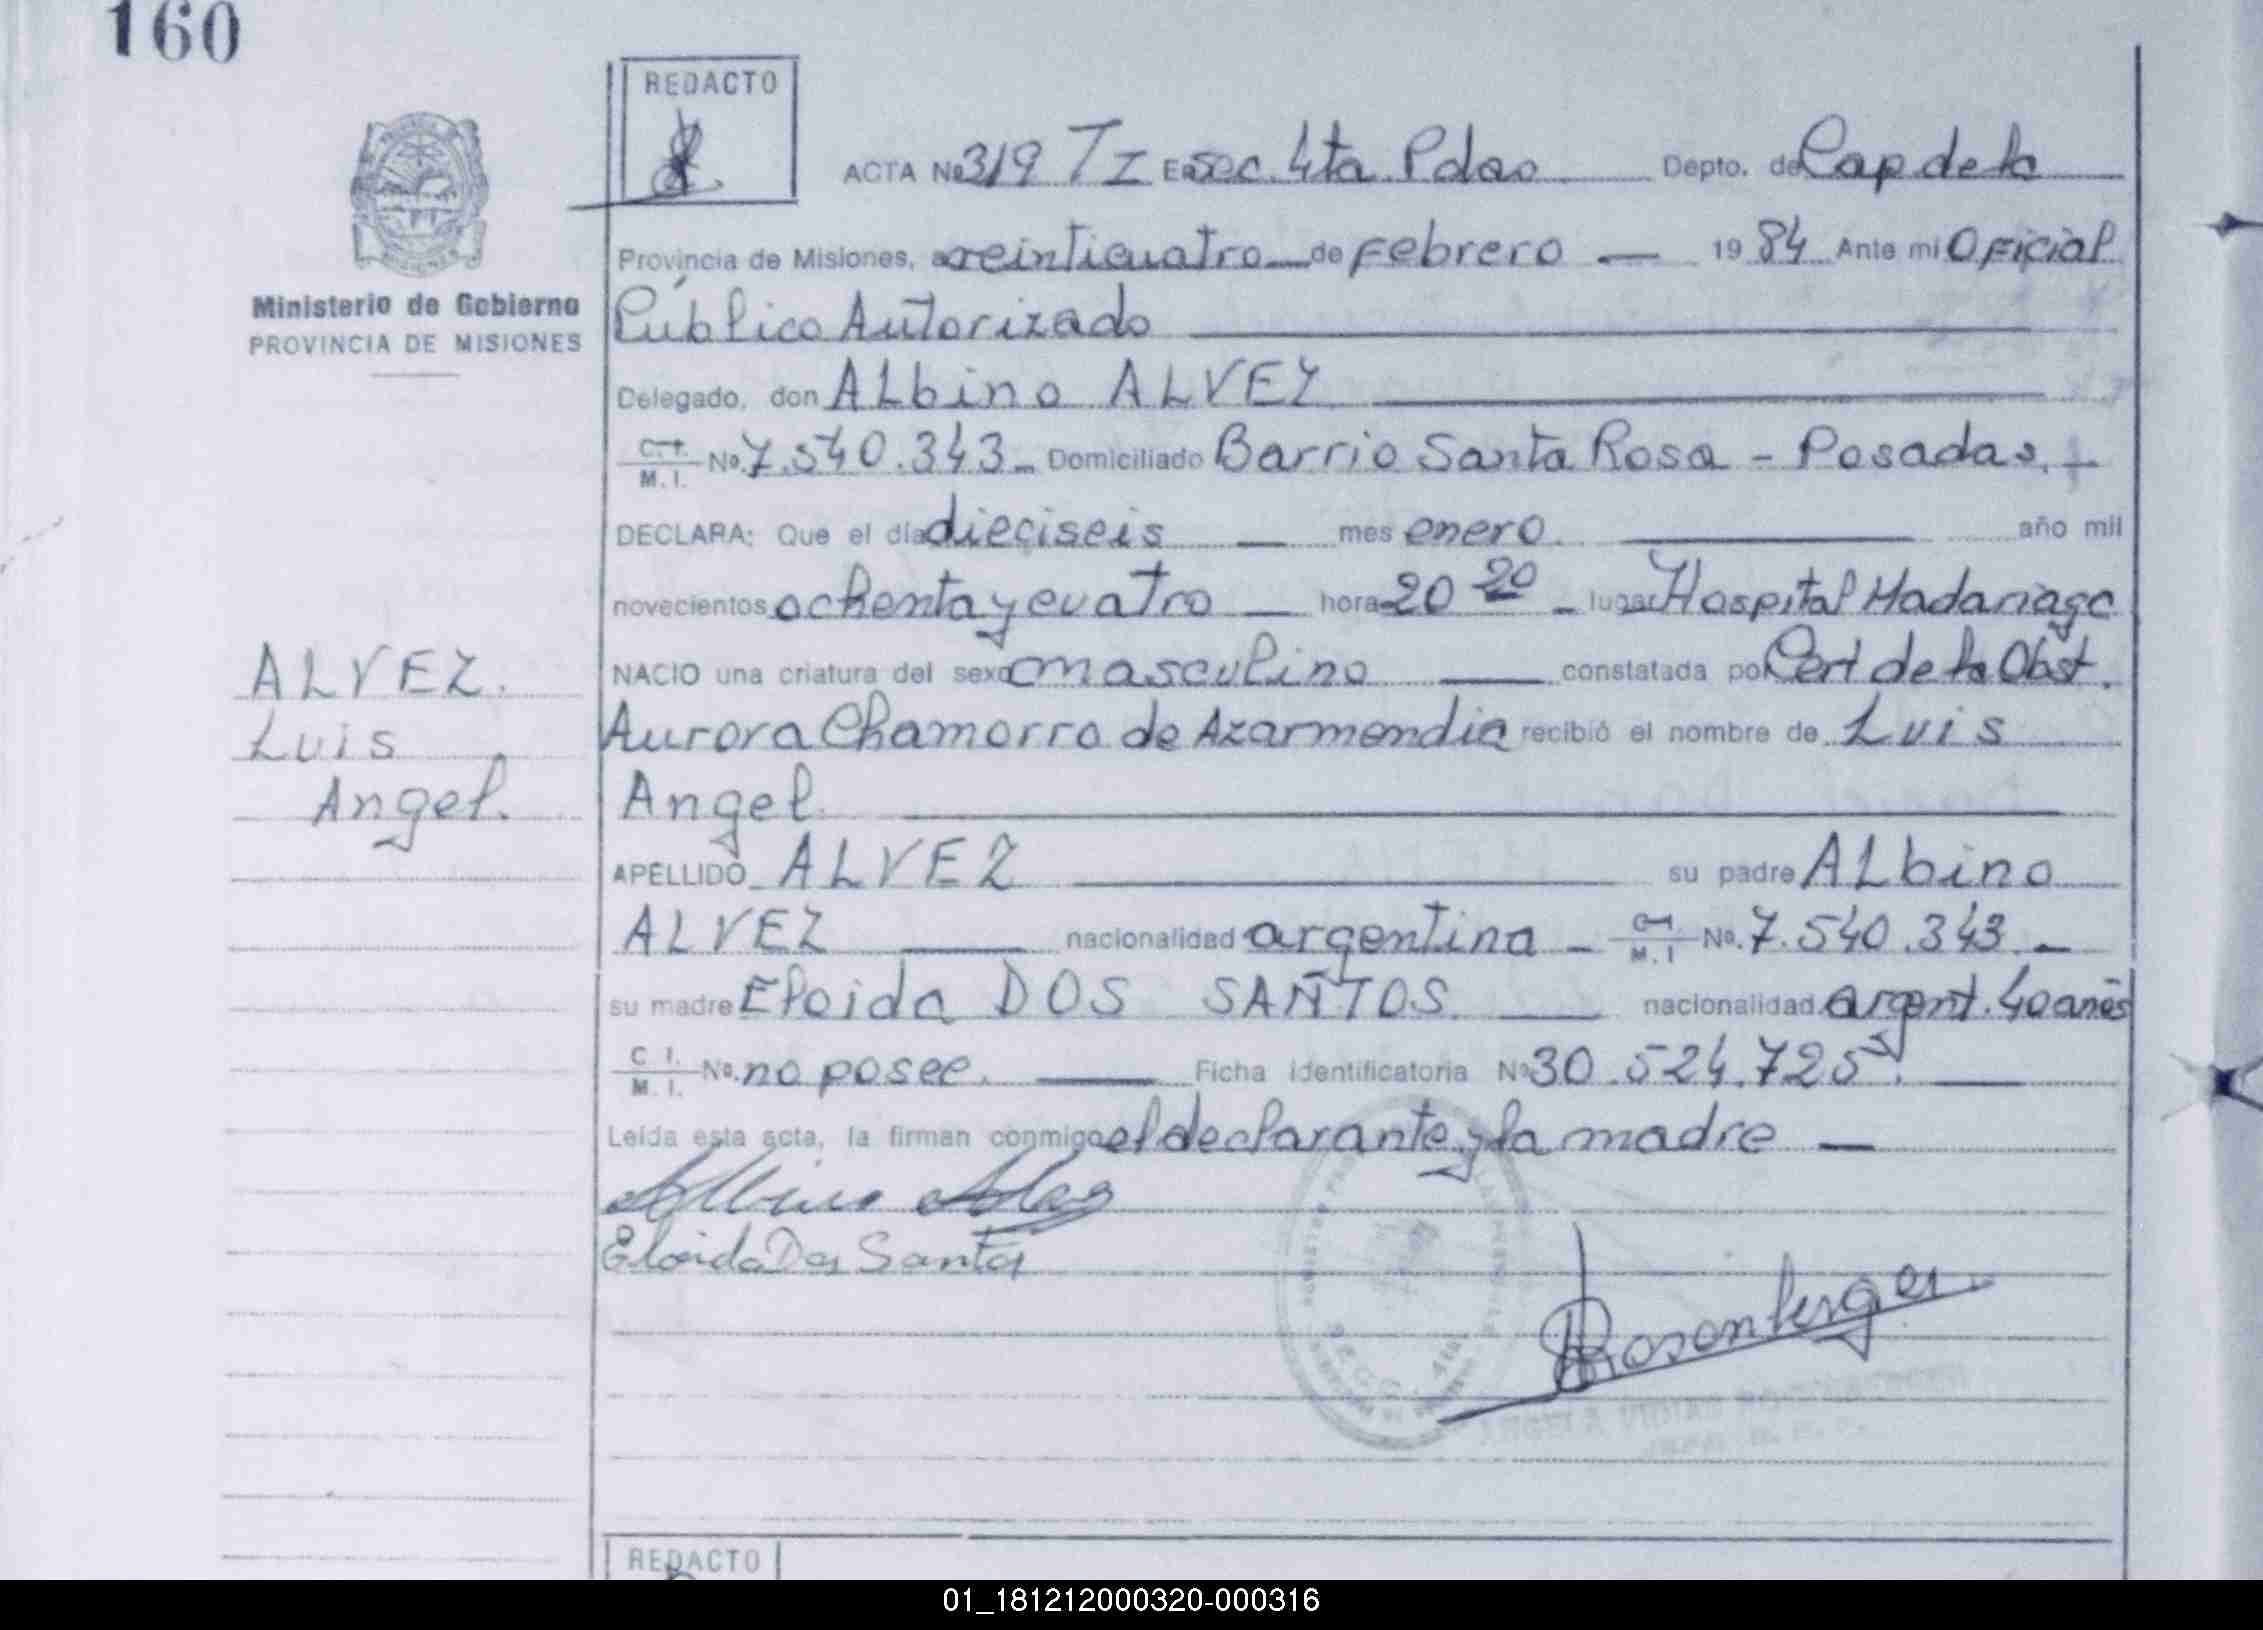 160
REDACTO
ACTA Nº 319 T I En Sec. 4ta Pdas Depto. de Cap de la
Provincia de Misiones, a veinticuatro de Febrero — 19 84 Ante mi Oficial
Ministerio de Gobierno
PROVINCIA DE MISIONES
Público Autorizado
Delegado, don ALbino ALVEZ
C.I. M.I. Nº 7.540.343 - Domiciliado Barrio Santa Rosa - Posadas.
DECLARA: Que el día dieciseis — mes enero. año mil
novecientos ochenta y cuatro — hora 20 20 - lugar Hospital Madariaga
NACIO una criatura del sexo masculino — constatada por Cert de la Obst.
Aurora Chamorro de Azarmendia recibió el nombre de Luis
Angel.
ALVEZ.
Luis
Angel.
APELLIDO ALVEZ su padre ALbino
ALVEZ — nacionalidad argentina - C.I. M.I Nº. 7.540.343. -
su madre Eloida DOS SAÑTOS. — nacionalidad argent. 40 años
C I. M. I. Nº. no posee. — Ficha Identificatoria Nº 30.524.725. —
Leída esta acta, la firman conmigo el declarante y la madre —
Albino Alvez
Eloida Dos Santos
Rosenberger
SECC. 4ta
ANGELA
REDACTO
01_181212000320-000316